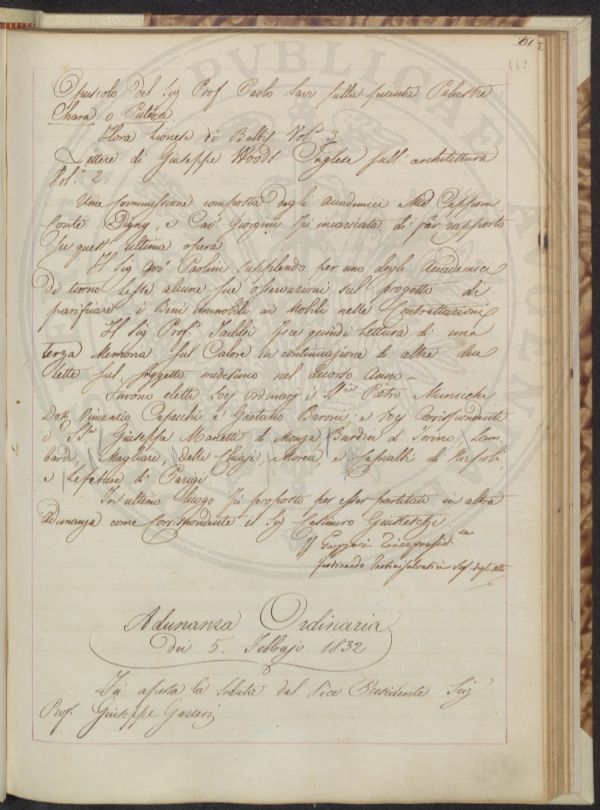 181
182
Opuscolo del Sig Prof Paolo Savi sulla pianta Palustre
Chara o Putera
Flora Lionese di Balbis Vol. 3
Lettere di Giuseppe Woods Inglese sull'architettura
Vol. 2
Una Commissione composta degli Academici Med Capponi
Conte Digny, e Cav Giorgini fu incaricata di far rapporto
Su quest'ultima opera
Il Sig Avv Paolini supplendo per uno degli Academici
di turno lesse alcune sue osservazioni sul progetto di
parificare i Beni immobili ai Mobili nelle Contrattazioni
Il Sig Prof. Taddei fece quindi lettura di una
terza Memoria sul Calore in continuazione di altre due
lette sul soggetto medesimo nel decorso Anno
Furono eletti Socj Ordinarj i SS. Pietro
Dott Vincenzio Capecchi e Gaetano Baroni e Socj Corrispondenti
i SS. Giuseppe Manetti di Monza Bardin di Torino, Lom
bardi, Magliari, delle Chiaje, Morea e di Napoli
e Lefebure di Parigi
In ultimo luogo fu proposto per esser partitato in altra
Adunanza come Corrispondente il Sig Casimiro
G Gazzeri Vicepresid.
Ferdinando Tartini Salvatici Seg. degli Atti
Adunanza Ordinaria
dei 5. Febbrajo 1832
Fu aperta la Seduta dal Vice Presidente Sig
Prof. Giuseppe Gazzeri